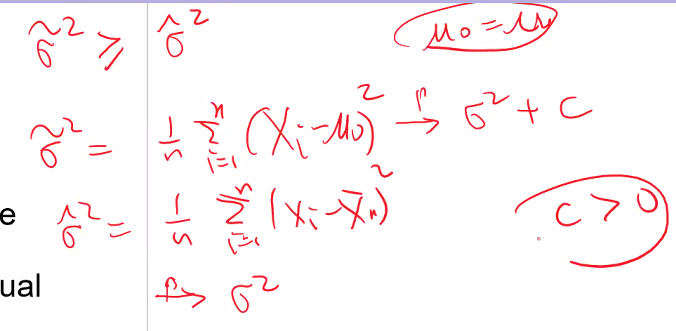 σ̃² ≥ σ̂² μ₀ = μ
σ̃² = 1/n Σⁿᵢ₌₁ (Xᵢ - μ₀)² →ᵖ σ² + c
e σ̂² = 1/n Σⁿᵢ₌₁ (Xᵢ - X̄ₙ)² c > 0
ual →ᵖ σ²